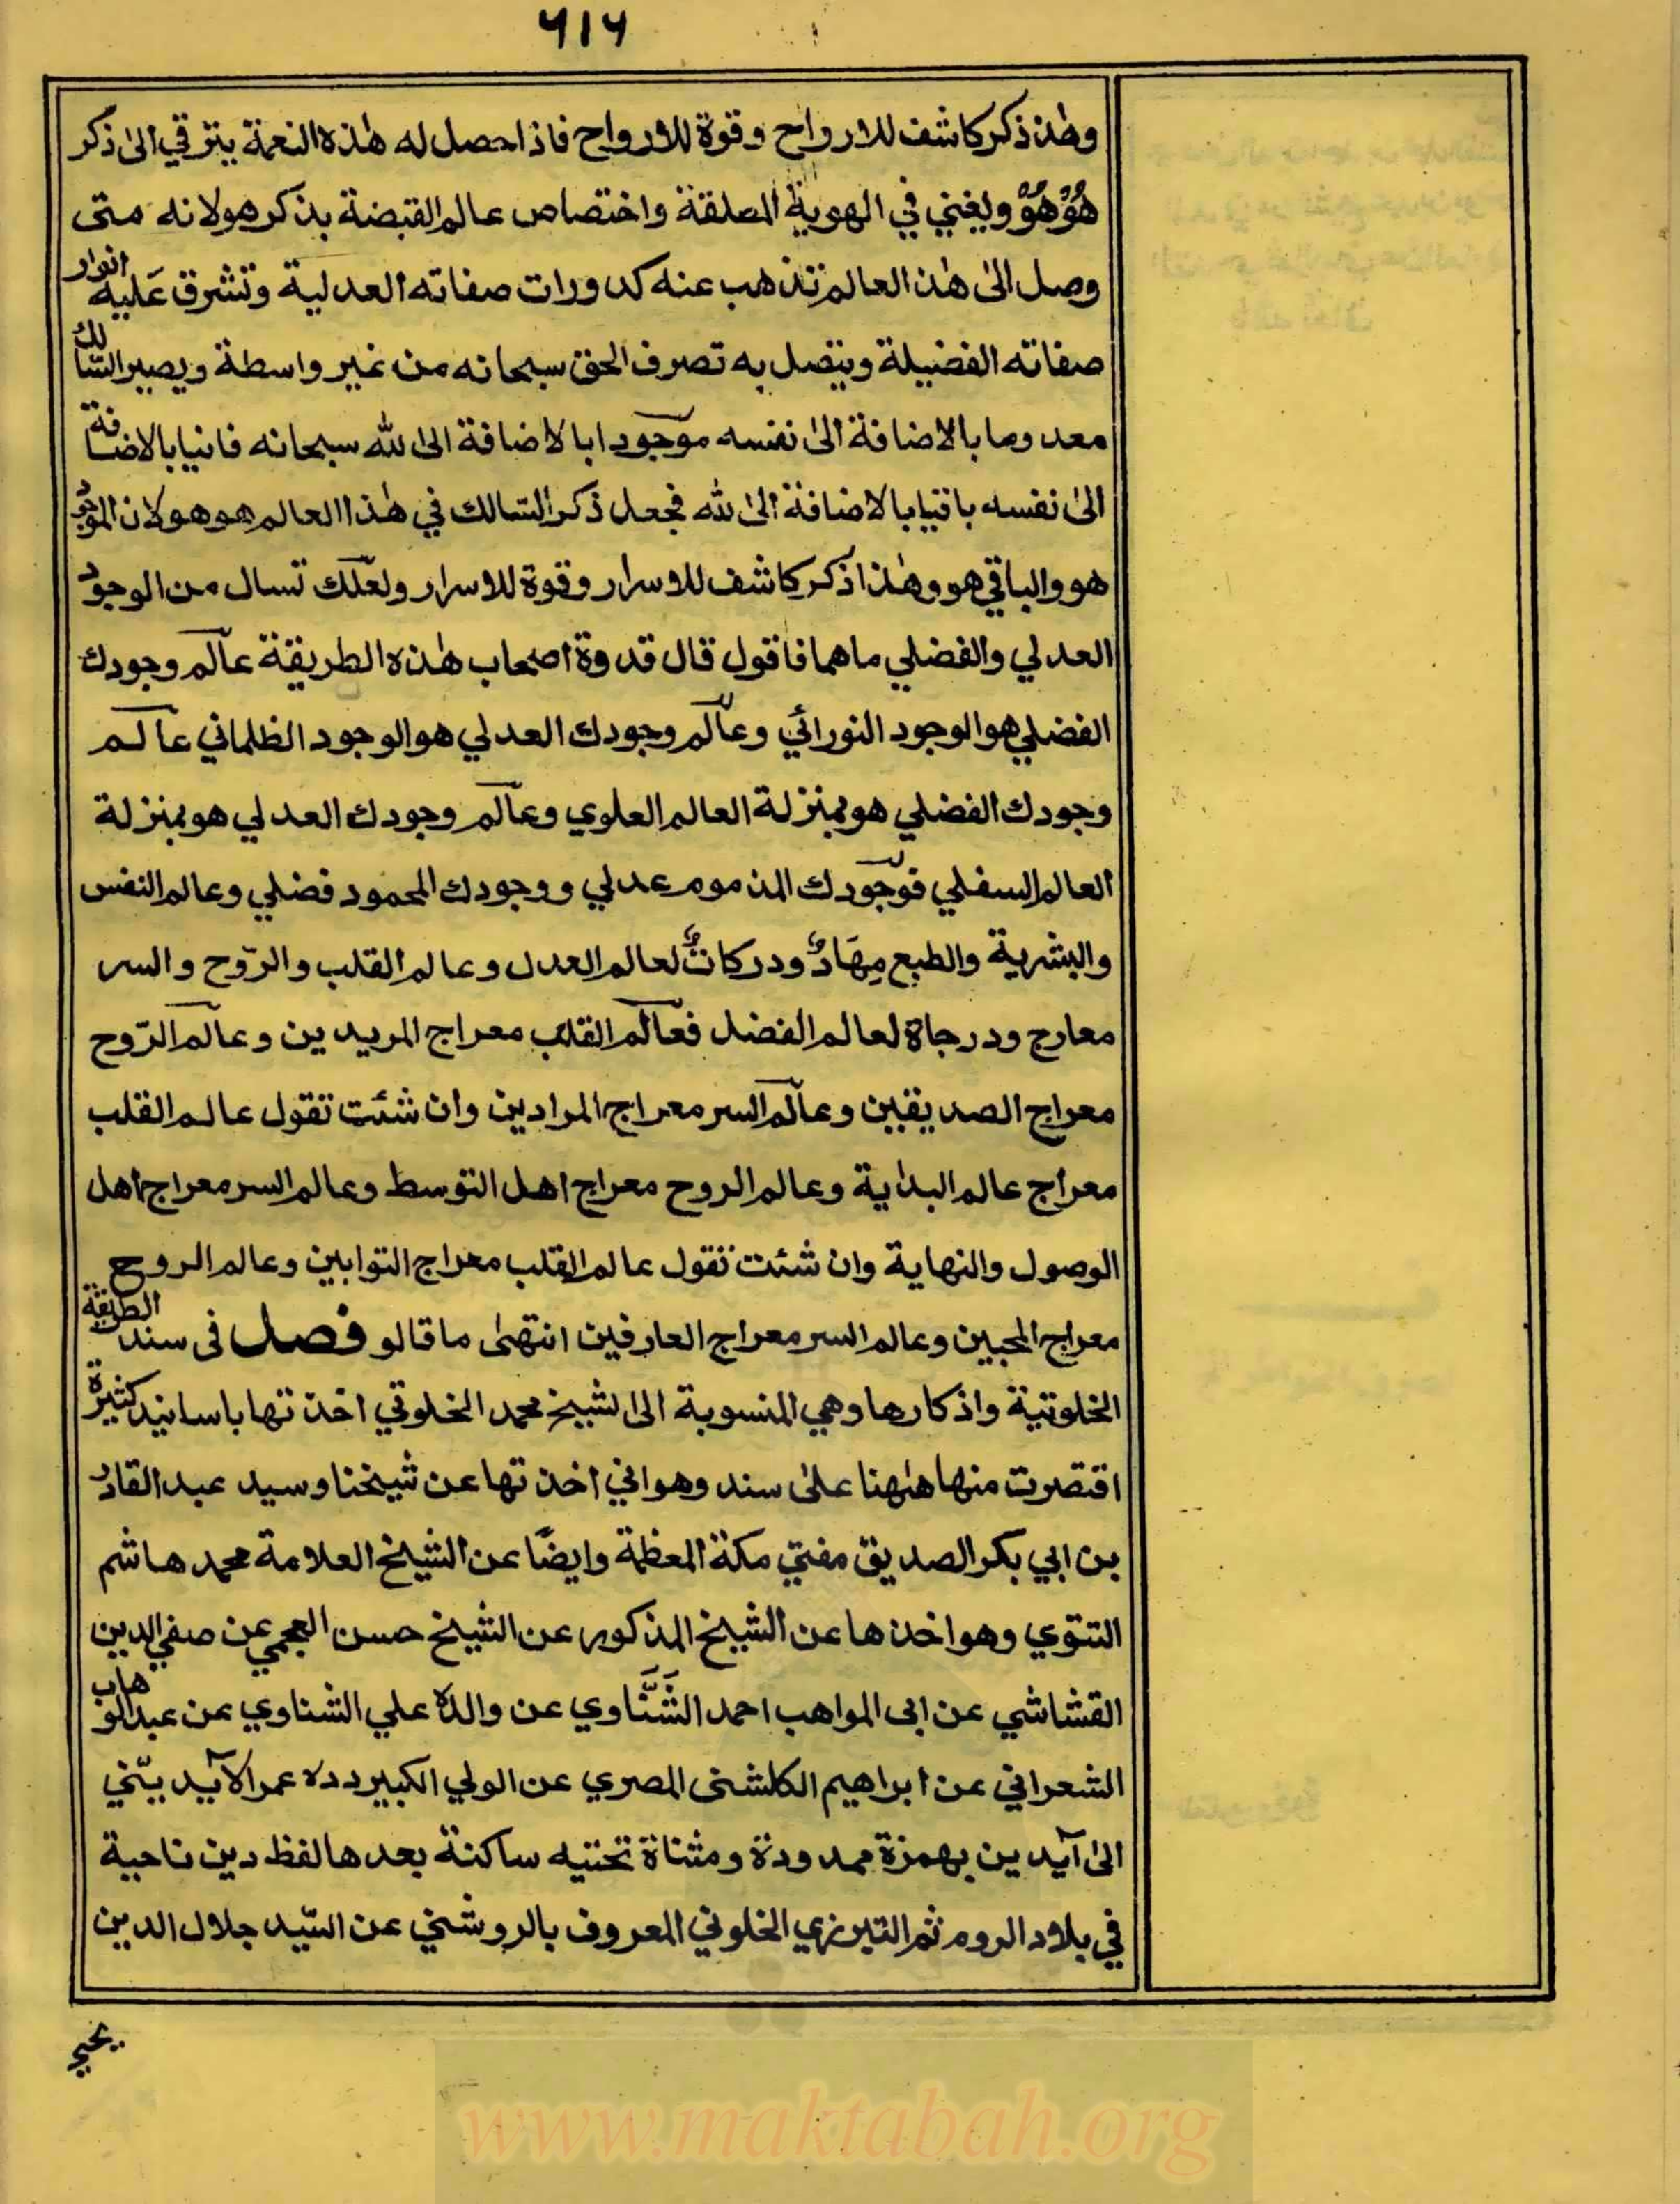 ٦١٦
وهذ ذكر كاشف للارواح وقوة للارواح فاذا حصل له هٰذه النعمة يترقي الىٰ ذكر
هُوْ هُوْ ويفني في الهوية المطلقة واختصاص عالم القبضة بذكر هو لانه متى
وصل الىٰ هٰذ العالم تذهب عنه كدورات صفاته العدلية وتشرق عَليه انوار
صفاته الفضيلة ويتصل به تصرف الحق سبحانه من غير واسطة ويصير السّالك
معدوما بالاضافة الىٰ نفسه موجودا بالاضافة الىٰ لله سبحانه فانيا بالاضافة
الىٰ نفسه باقيا بالاضافة الىٰ لله فجعل ذكر السّالك في هٰذا العالم هو هو لان الموجود
هو والباقي هو وهٰذا ذكر كاشف للاسرار وقوة للاسرار ولعلّك تسال من الوجود
العدلي والفضلي ماهما فاقول قال قدوة اصحاب هٰذه الطريقة عالم وجودك
الفضلي هو الوجود النورائي وعالم وجودك العدلي هو الوجود الظلماني عالم
وجودك الفضلي هو بمنزلة العالم العلوي وعالم وجودك العدلي هو بمنزلة
العالم السفلي فوجودك المذموم عدلي ووجودك المحمود فضلي وعالم النفس
والبشرية والطبع مِهَادٌ ودركاتٌ لعالم العدل وعالم القلب والرّوح والسر
معارج ودرجاة لعالم الفضل فعالم القلب معراج المريدين وعالم الرّوح
معراج الصديقين وعالم السر معراج المرادين وان شئت تقول عالم القلب
معراج عالم البداية وعالم الروح معراج اهل التوسط وعالم السر معراج اهل
الوصول والنهاية وان شئت تقول عالم القلب معراج التوابين وعالم الروح
معراج المحبين وعالم السر معراج العارفين انتهىٰ ما قالو فصل فى سند الطريقة
الخلوتية واذكارها وهي المنسوبة الى الشيخ محمد الخلوتي اخذتها باسانيد كثيرة
اقتصرت منها هٰهنا علىٰ سند وهو اني اخذتها عن شيخنا وسيد عبد القادر
بن ابي بكر الصديق مفتي مكة المعظمة وايضًا عن الشيخ العلامة محمد هاشم
التتوي وهو اخذها عن الشيخ المذكور عن الشيخ حسن العجمي عن صفي الدين
القشاشي عن ابى المواهب احمد الشَّنَّاوي عن والده علي الشناوي عن عبد الوهاب
الشعراني عن ابراهيم الكلشنى المصري عن الولي الكبير دده عمر الآيديني
الىٰ آيدين بهمزة ممدودة ومثناة تحتيه ساكنة بعدها لفظ دين ناحية
في بلاد الروم ثم التبريزي الخلوتي المعروف بالروشني عن السّيد جلال الدين
يحيي
www.maktabah.org